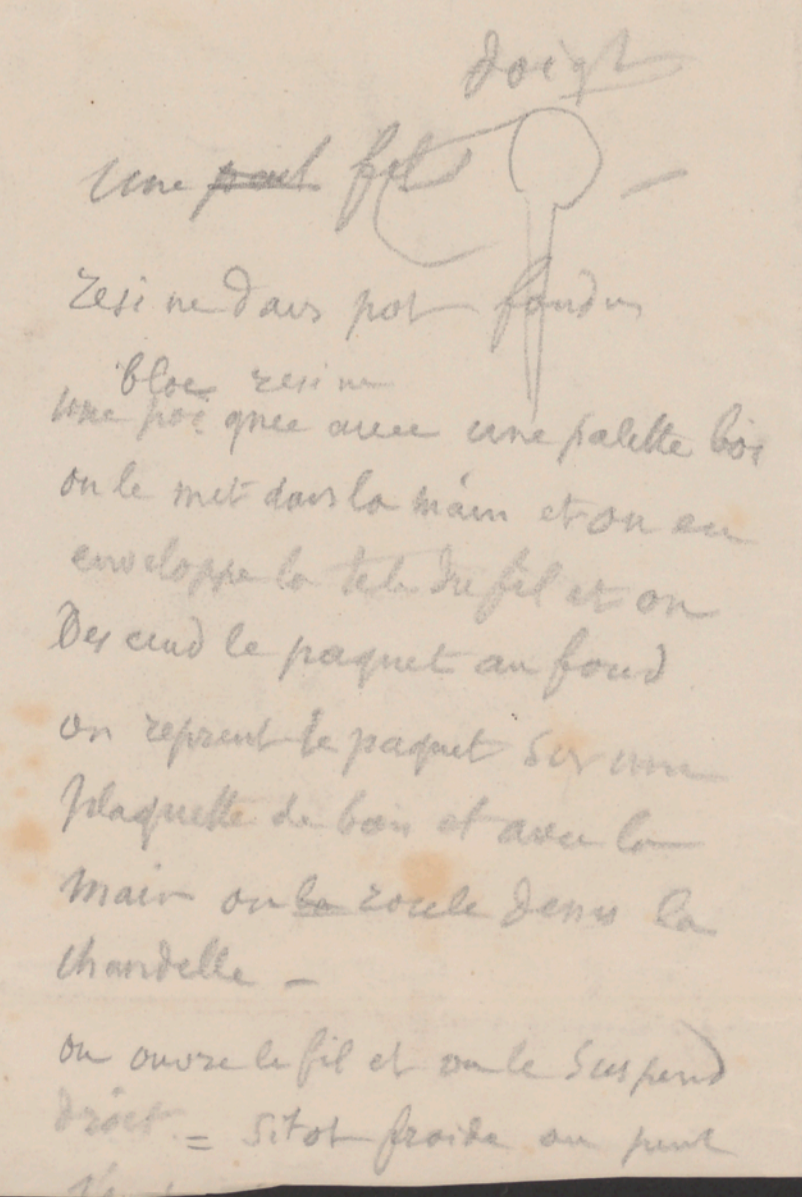 doigt
une fil
resine dans pot fondu
bloc resine
une poignee avec une palette bois
on le met dans la main et on en
enveloppe la tete du fil et on
Descend le paquet au fond
on reprent le paquet sur une
plaquette de bois et avec la
main on la roule dessus la
chandelle –
on ouvre le fil et on le suspend
droit = sitot froide on peut